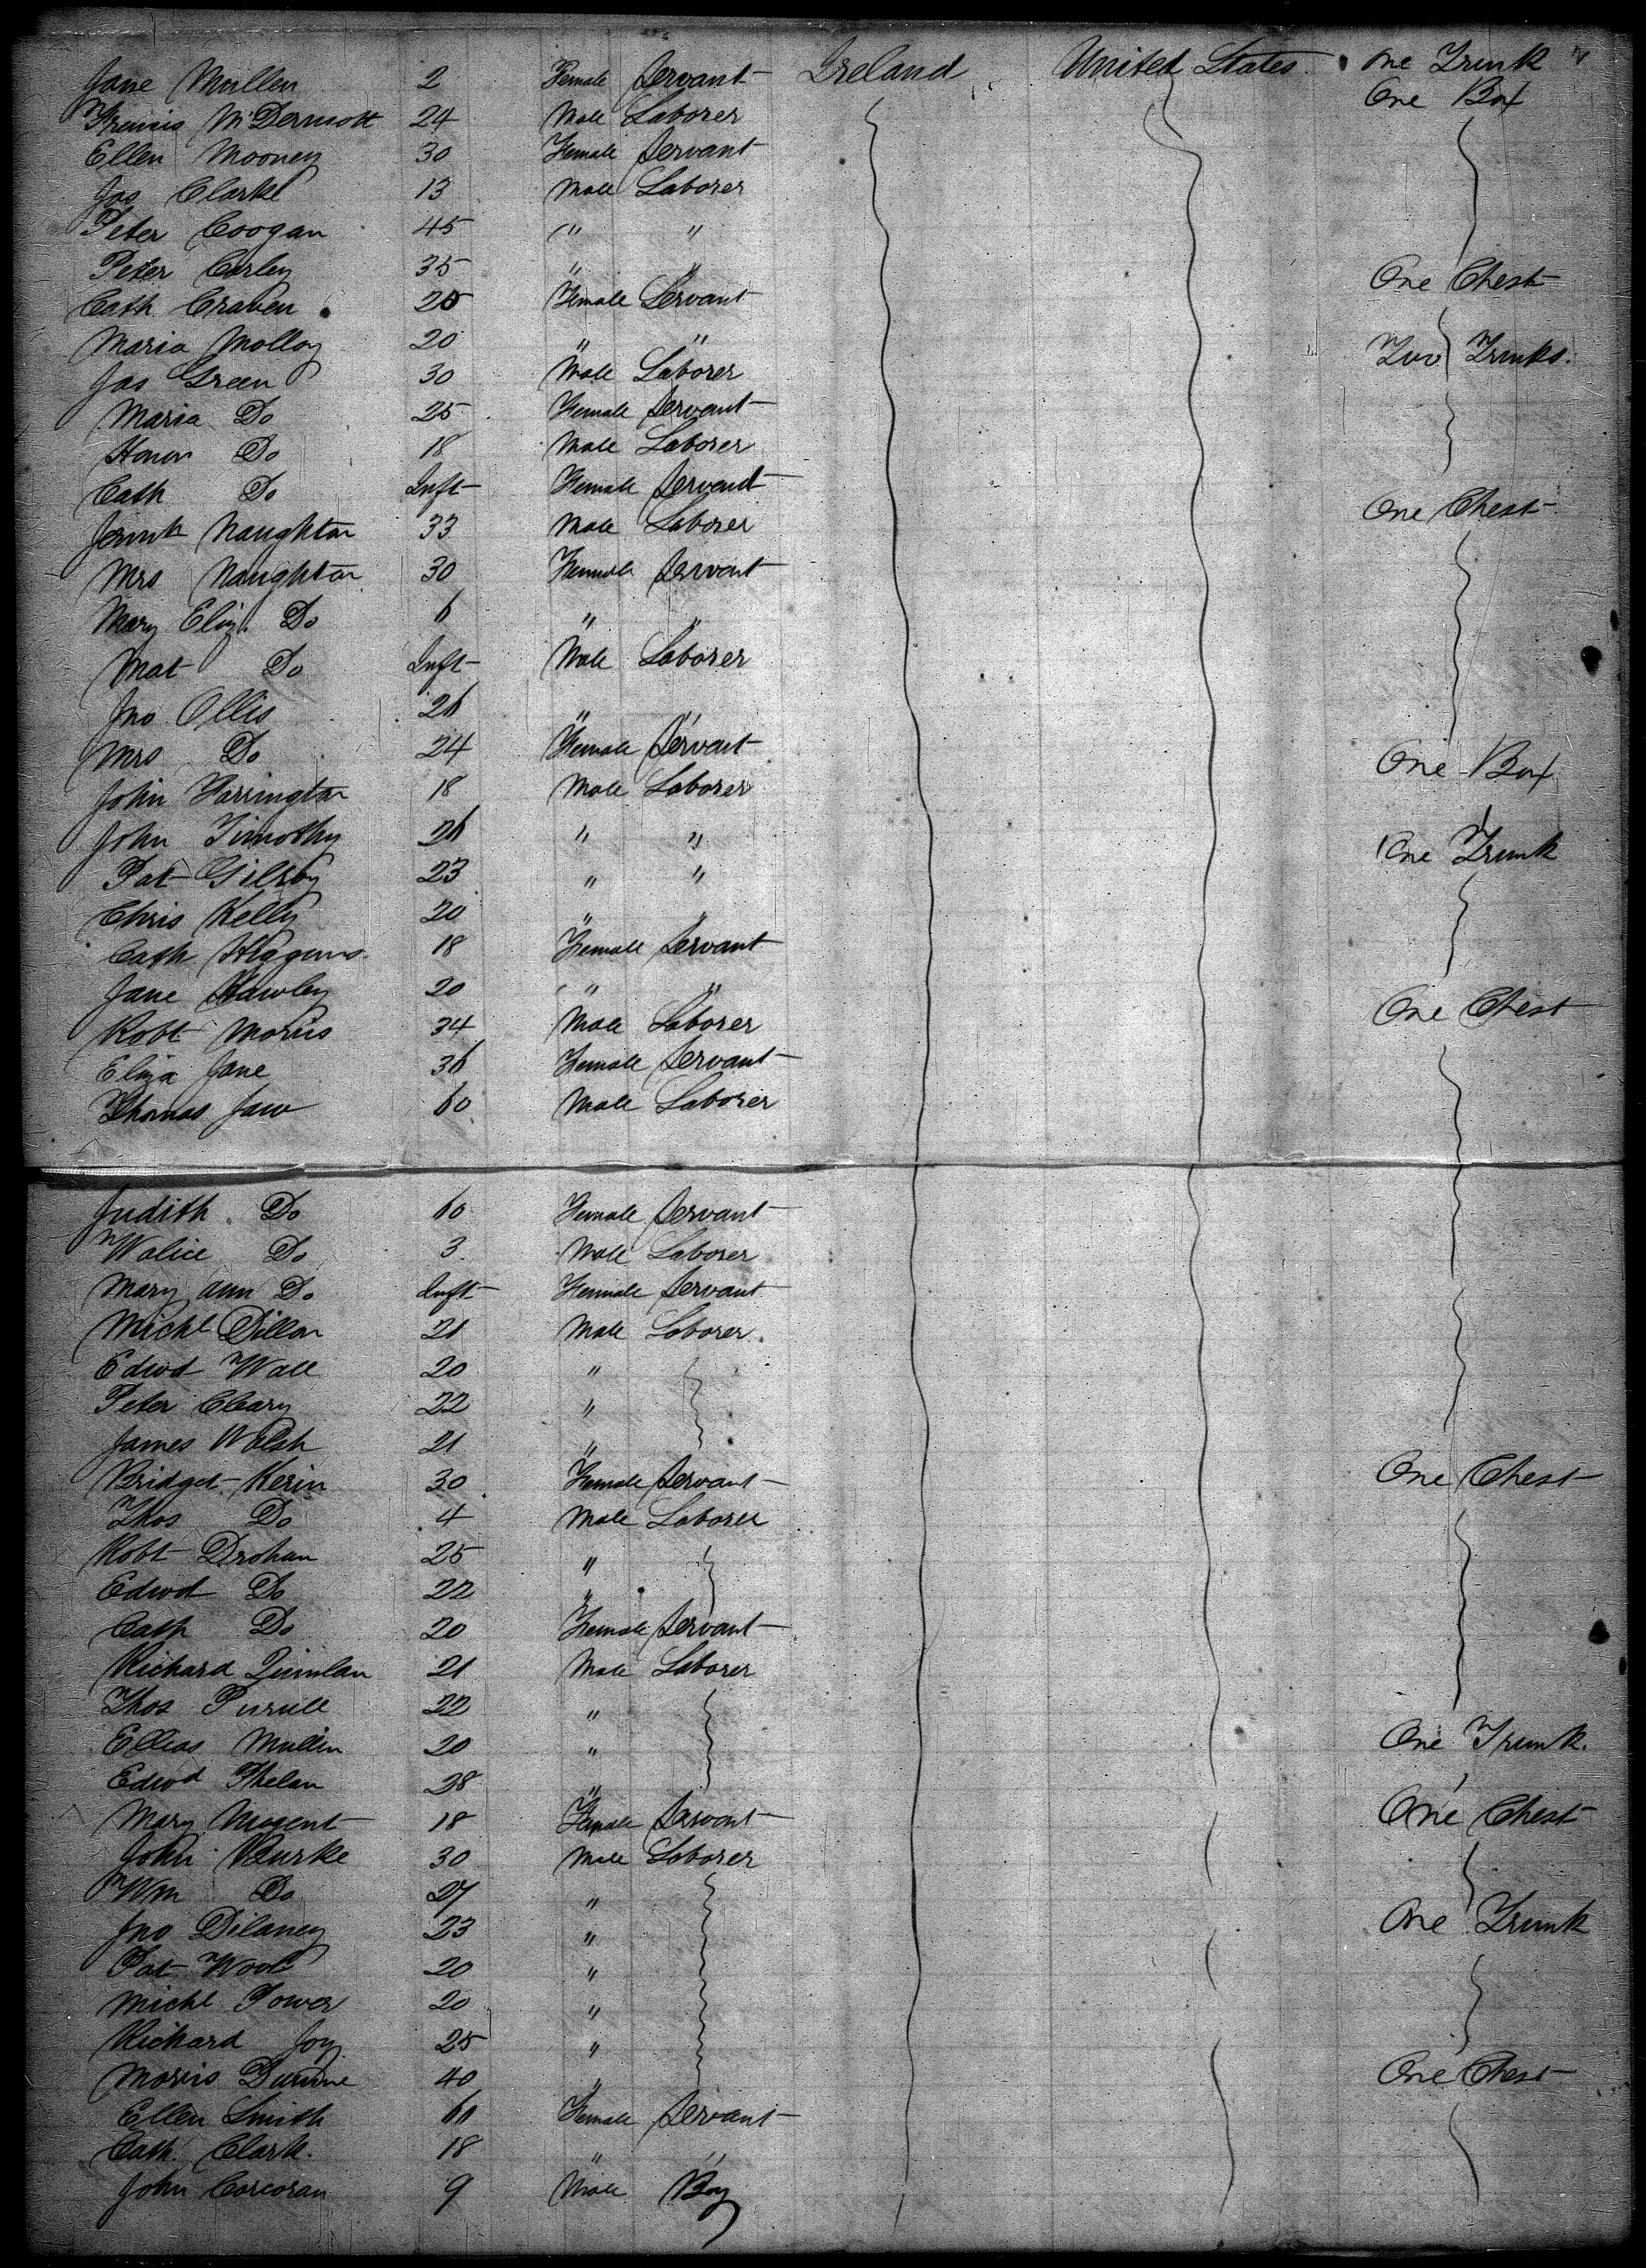 Jane Mullen 2 Female Servant Ireland United States One Trunk
Francis McDermott 24 Male Laborer One Box
Ellen Mooney 30 Female Servant
Jas Clarke 13 Male Laborer
Peter Coogan 45 " "
Peter Curley 35 " " One Chest
Cath Craven 25 Female Servant
Maria Molloy 20 " " Two Trunks
Jas Green 30 Male Laborer
Maria Do 25 Female Servant
Honor Do 18 Male Laborer
Cath Do Inft Female Servant
Naughton 33 Male Laborer One Chest
Mrs Naughton 30 Female Servant
Mary Eliz. Do 6 " "
Mat Do Inft Male Laborer
Jno Ollis 26 " "
Mrs Do 24 Female Servant One Box
John Farrington 18 Male Laborer
John Timothy 26 " " One Trunk
Pat Gilroy 23 " "
Chris Kelly 20 " "
Cath Higgins 18 Female Servant
Jane Hawley 20 " "
Robt Morris 34 Male Laborer One Chest
Eliza Jane 36 Female Servant
Thomas 60 Male Laborer
Judith Do 60 Female Servant
Do 3 Male Laborer
Mary Ann Do Inft Female Servant
Michl Dillon 21 Male Laborer
Edwd Wall 20 "
Peter Cleary 22 "
James Walsh 21 "
Bridget Kerin 30 Female Servant One Chest
Thos Do 4 Male Laborer
Robt Drohan 25 "
Edwd Do 22 "
Cath Do 20 Female Servant
Richard Quinlan 21 Male Laborer
Thos Pursell 22 "
Ellias Mullin 20 " One Trunk.
Edwd Phelan 28 "
Mary Nugent 18 Female Servant One Chest
John Burke 30 Male Laborer
Wm Do 27 "
Jno Dilaney 23 " One Trunk
Pat 20 "
Michl Power 20 "
Richard Joy 25 "
Morris 40 " One Chest
Ellen Smith 61 Female Servant
Cath. Clark. 18 " "
John Corcoran 9 Male Boy